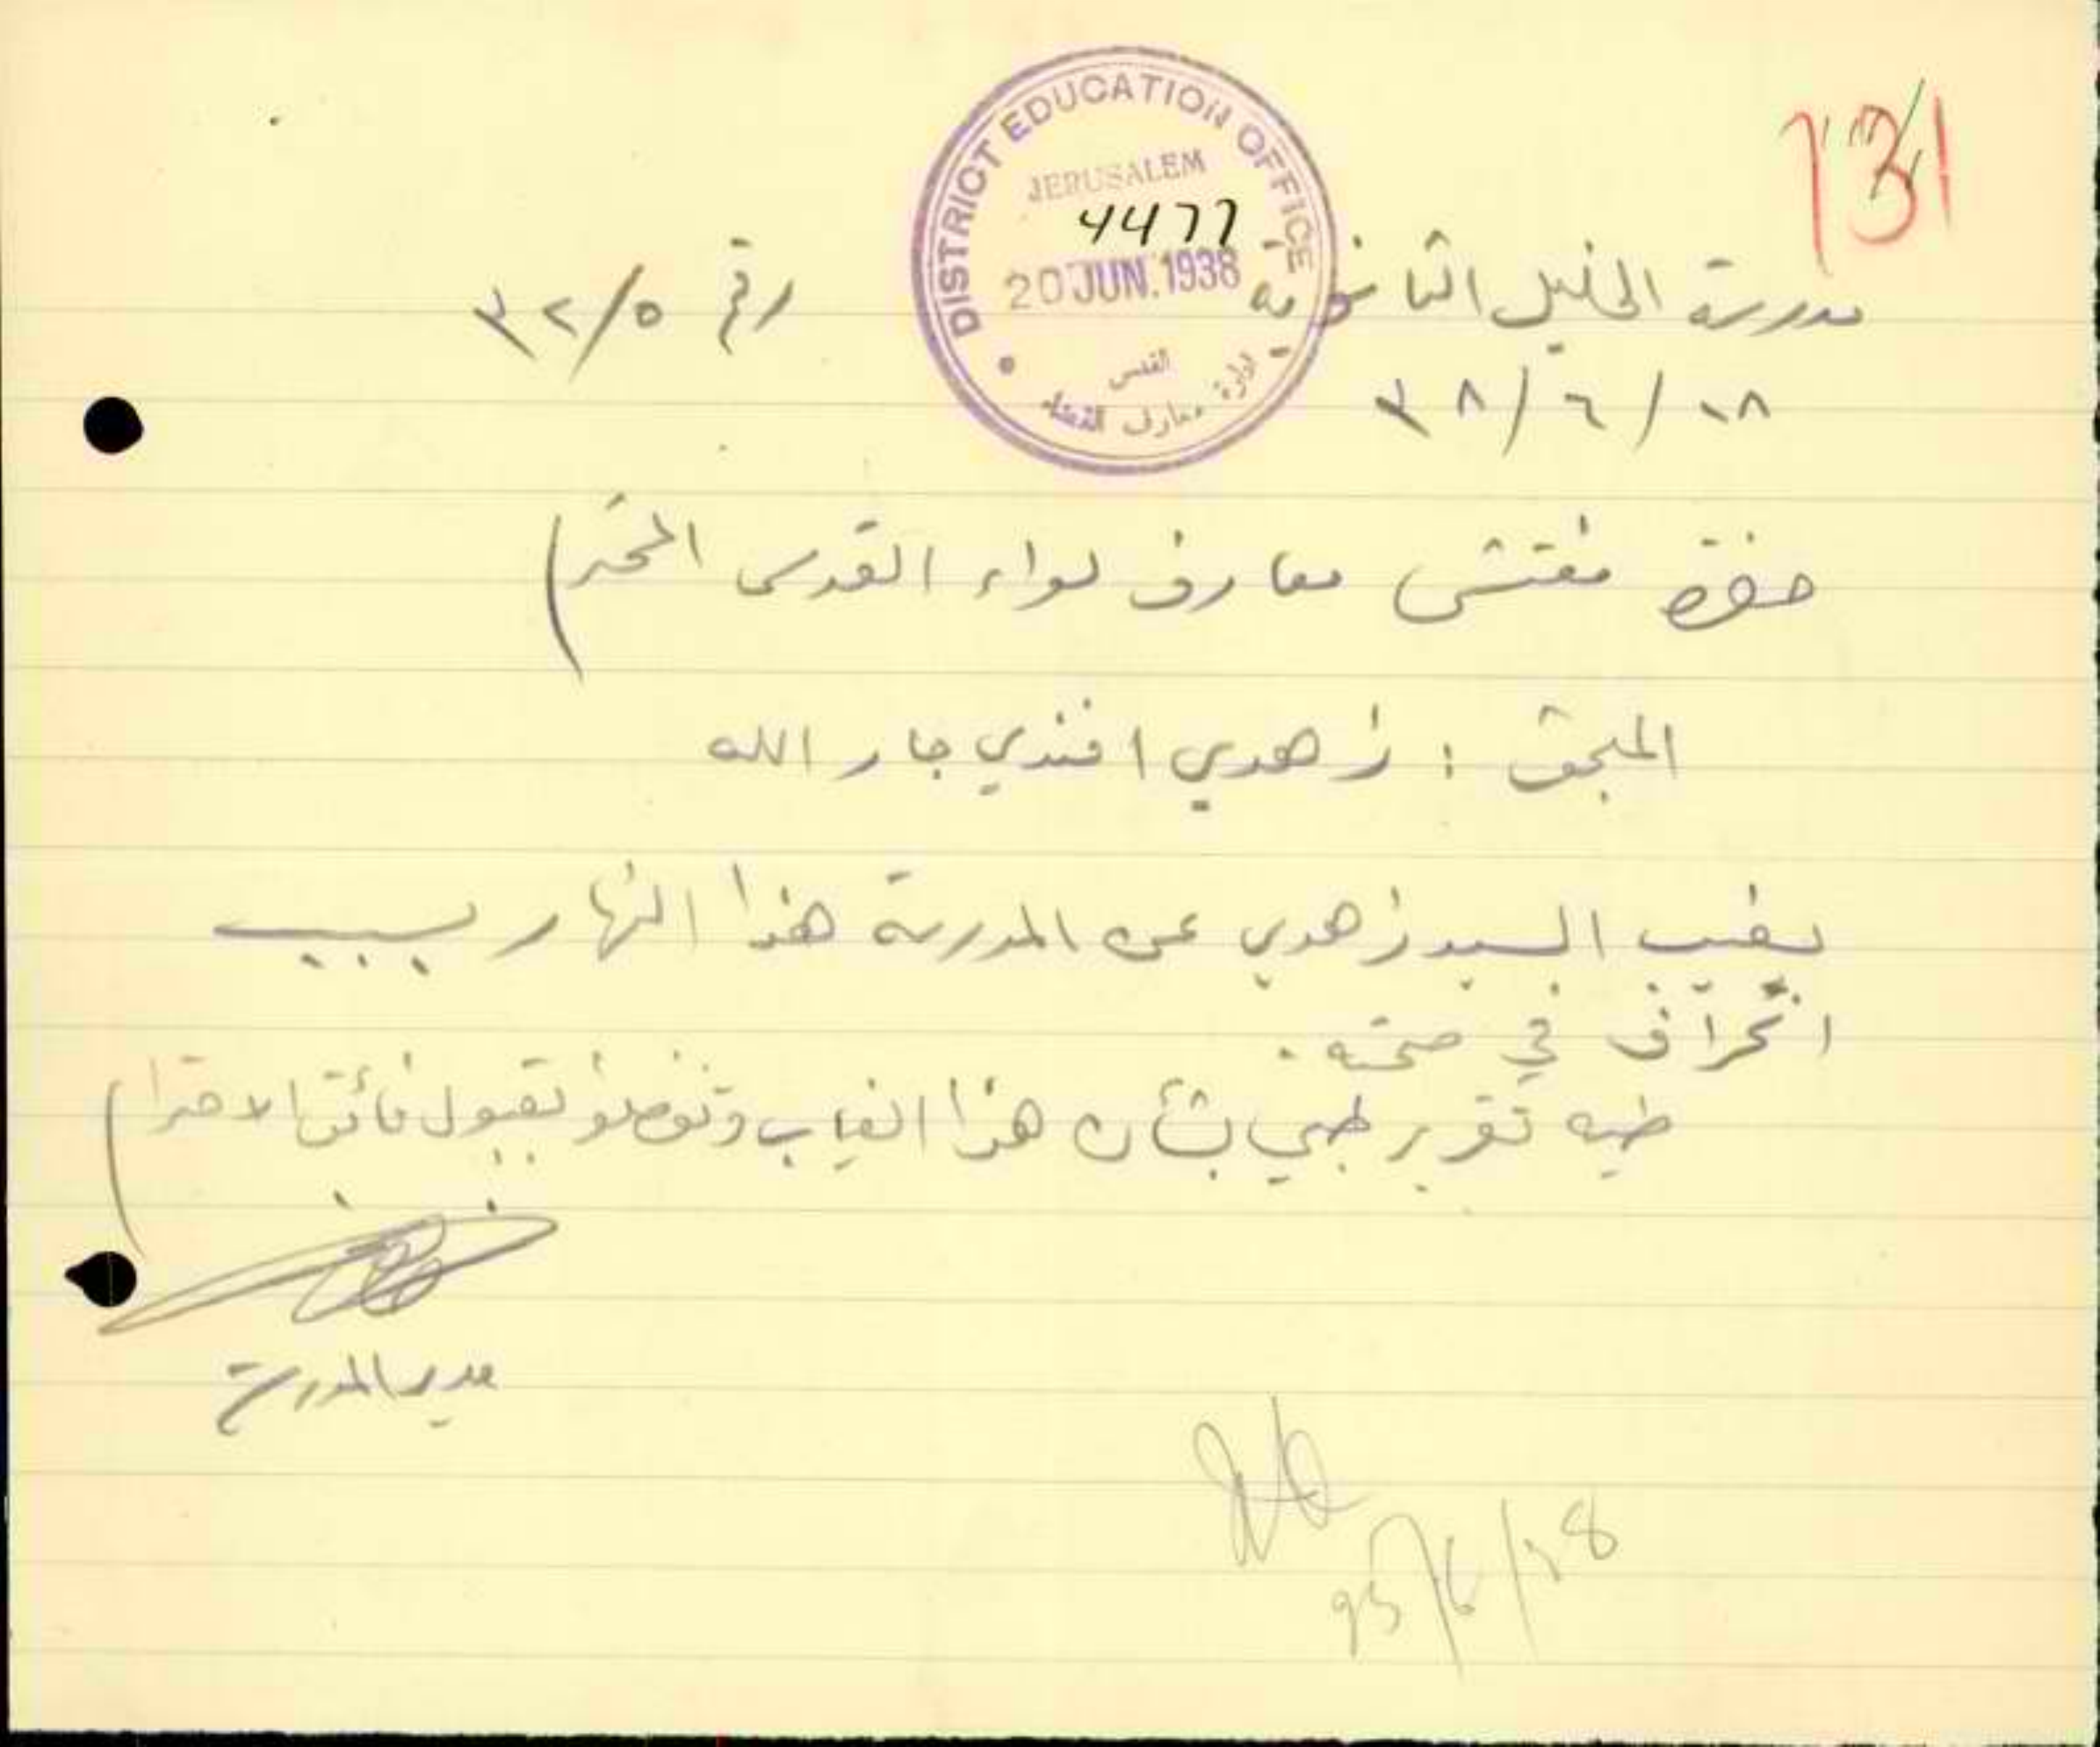 131
DISTRICT EDUCATION OFFICE
JERUSALEM
4477
20 JUN. 1938
القدس
ادارة معارف القضاء
مدرسة الخليل الثانوية رقم ٣٢/٥
١٨/٦/٣٨
حضرة مفتش معارف لواء القدس المحترم
المبحث : زهدي افندي جار الله
يغيب السيد زهدي عن المدرسة هذا النهار بسبب
انحراف في صحته .
طيه تقرير طبي بشأن هذا الغياب وتفضلوا بقبول فائق الاحترام
مدير المدرسة